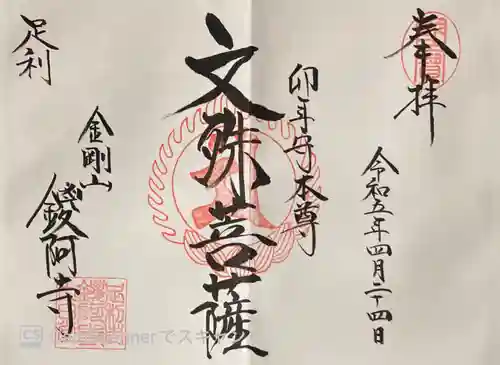 奉拝
令和五年四月二十四日
卯年守本尊
文殊菩薩
金剛山
鑁阿寺
足利
CS CamScannerでスキャン